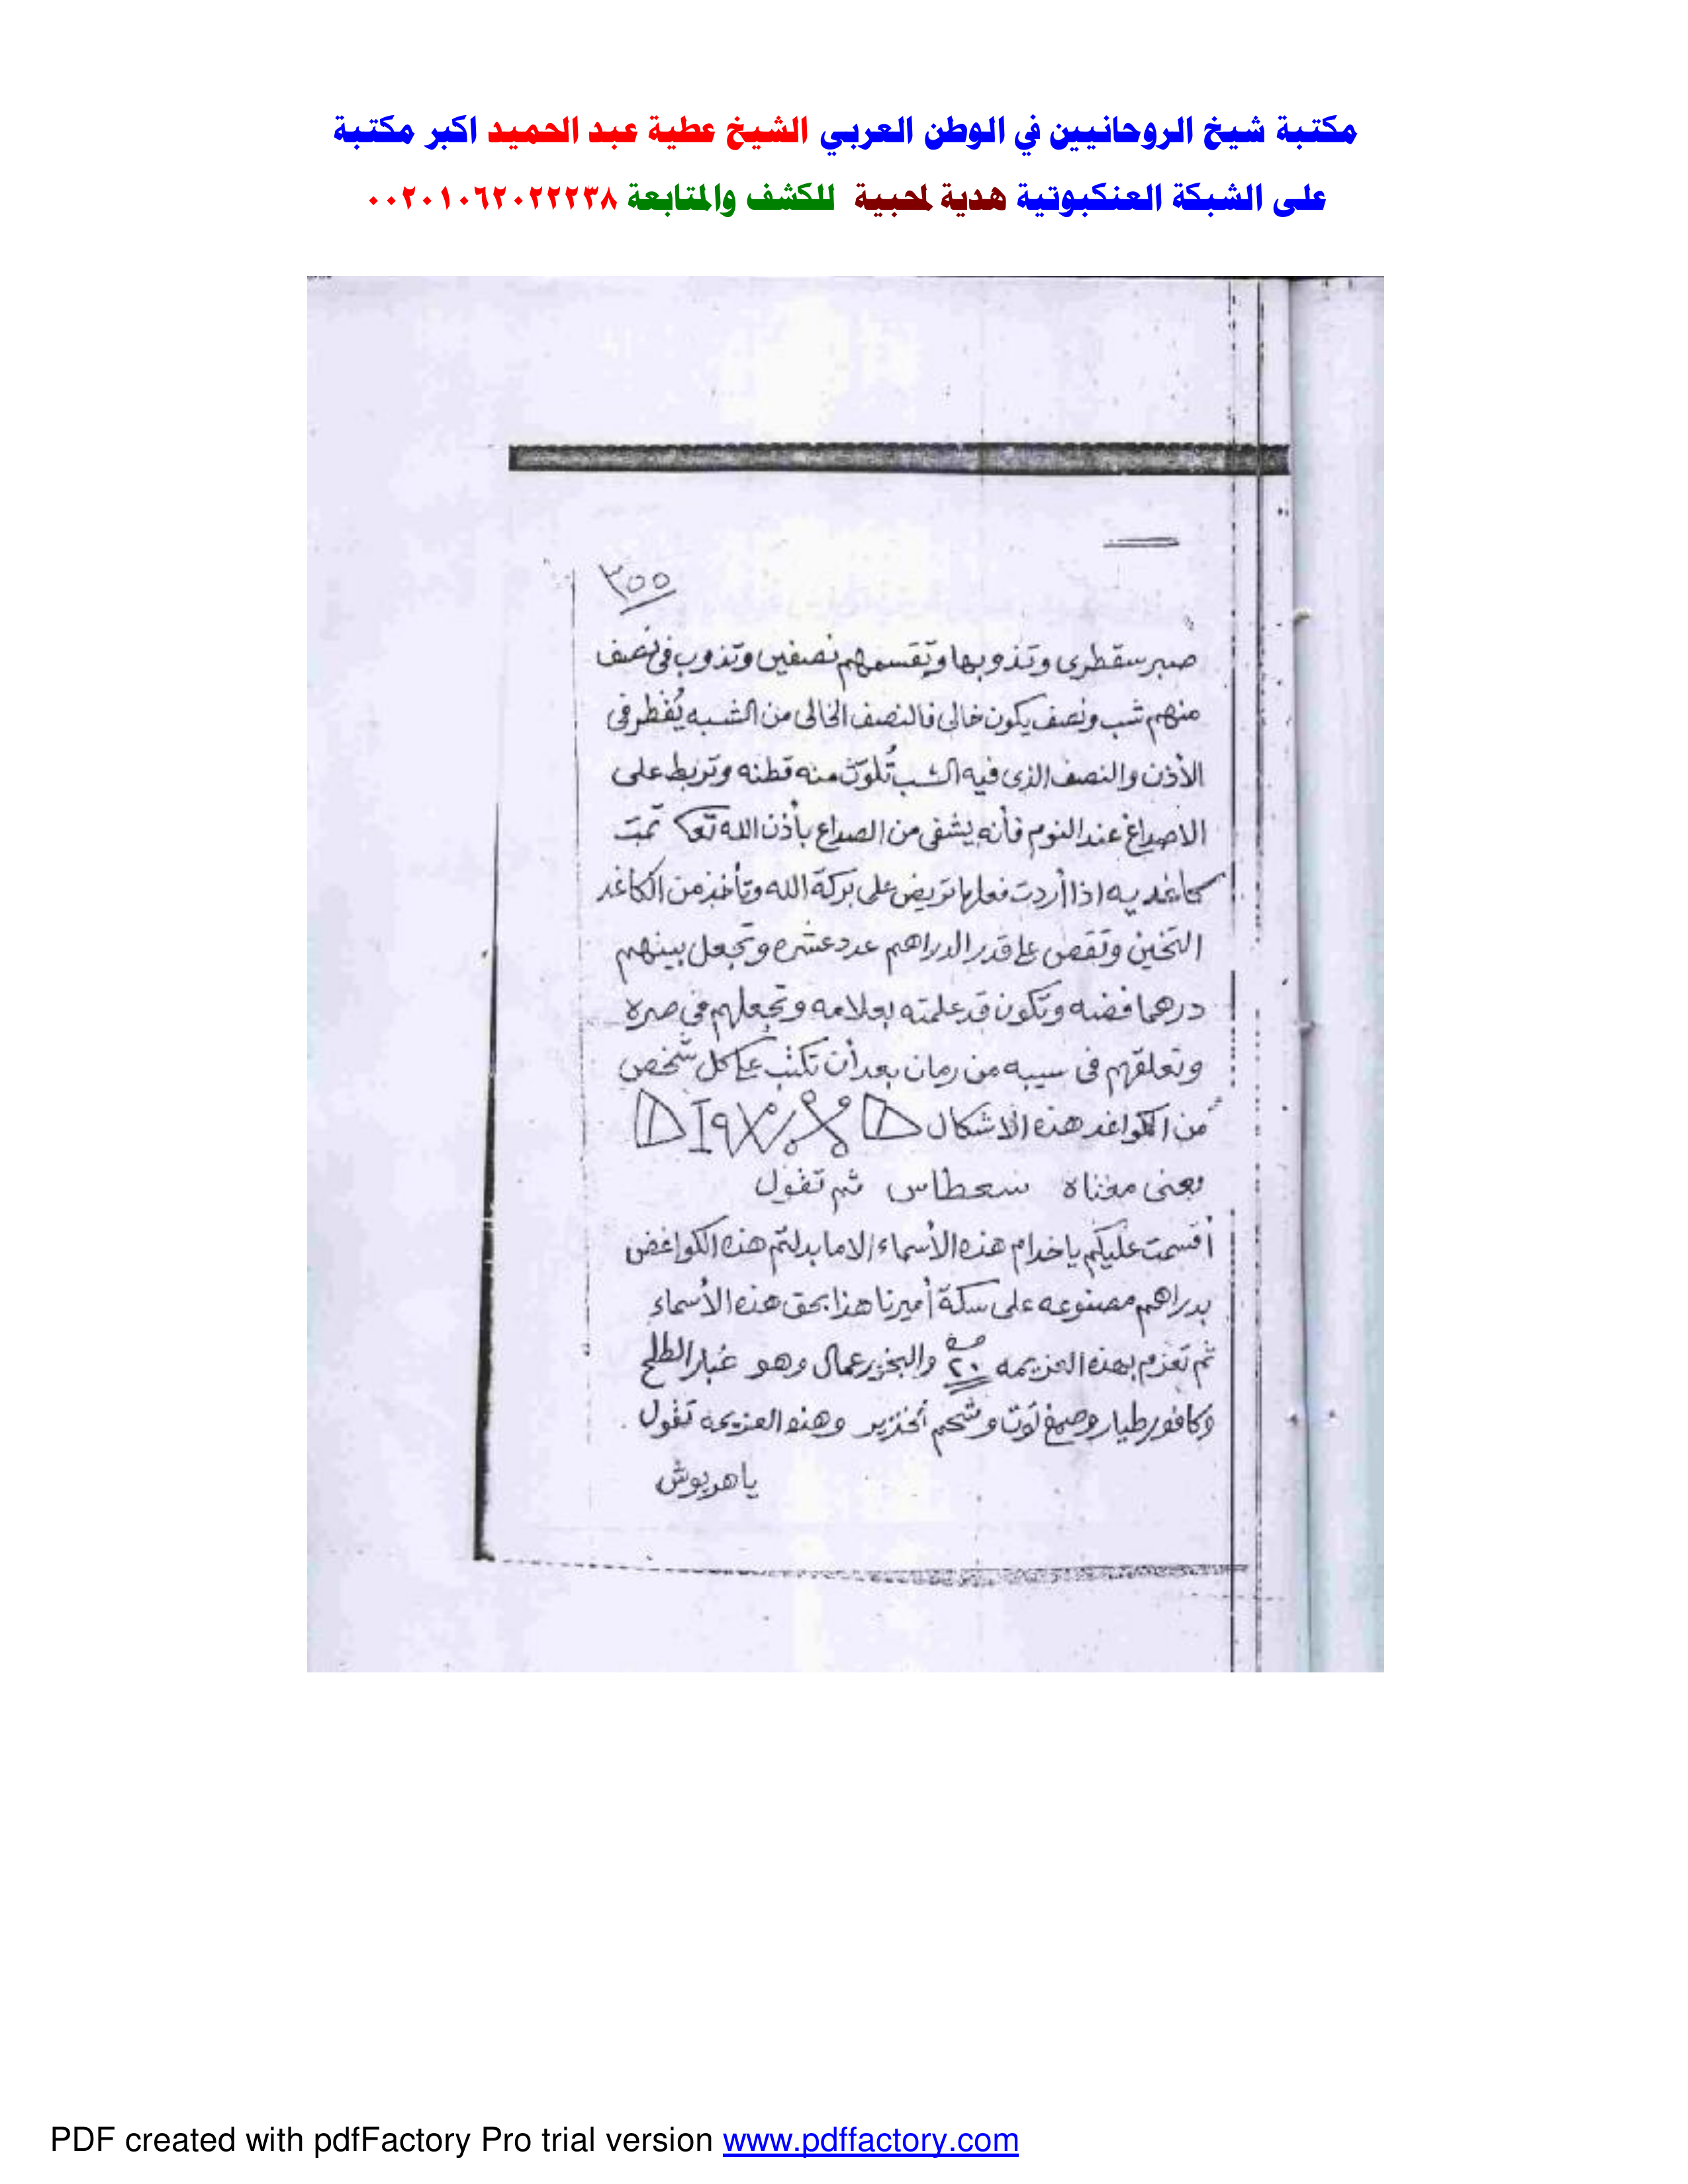 مكتبة شيخ الروحانيين في الوطن العربي الشيخ عطية عبد الحميد اكبر مكتبة
على الشبكة العنكبوتية هدية لمحبية للكشف والمتابعة ٠٠٢٠١٠٦٢٠٢٢٢٣٨
٣٥٥
صبر سقطرى وتذوبها وتقسمهم نصفين وتذوب فى نصف
منهم شب ونصف يكون خالى فالنصف الخالى من الشبه يُقطر فى
الأذن والنصف الذى فيه الشب تُلوّث منه قطنه وتربط على
الاصداغ عند النوم فأنه يشفى من الصداع بأذن الله تعا تمت
كاغديه اذا أردت فعلها تريض على بركة الله وتأخذ من الكاغد
التخين وتقص على قدر الدراهم عدد عشره وتجعل بينهم
درهما فضه وتكون قد علمته بعلامه وتجعلهم فى صره
وتعلقهم فى سيبه من رمان بعد أن تكتب على كل شخص
من الكواغد هذه الاشكال
يعنى معناه سعطاس ثم تقول
أقسمت عليكم ياخدام هذه الأسماء الا ما بدلتم هذه الكواغض
بدراهم مصنوعه على سكة أميرنا هذا بحق هذه الأسماء
ثم تعزم بهذه العزيمه ٢٠ والبخور عمال وهو غبار الطلح
وكافور طيار وصمغ توت وشحم خنزير وهذه العزيمه تقول
ياهريوش
PDF created with pdfFactory Pro trial version www.pdffactory.com